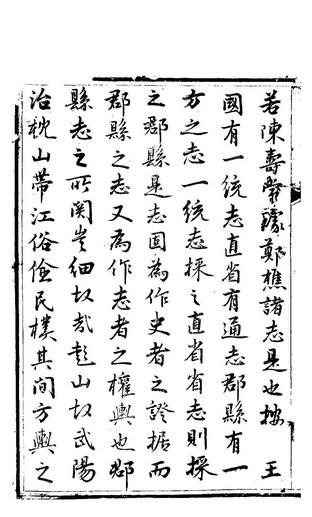 若陳壽常璩鄭樵諸志是也按 王
國有一統志直省有通志郡縣有一
方之志一統志採之直省省志則採
之郡縣是志固為作史者之證据而
郡縣之志又為作志者之權輿也郡
縣志之所関豈細故哉彭山故武陽
治枕山帶江俗儉民樸其间方輿之